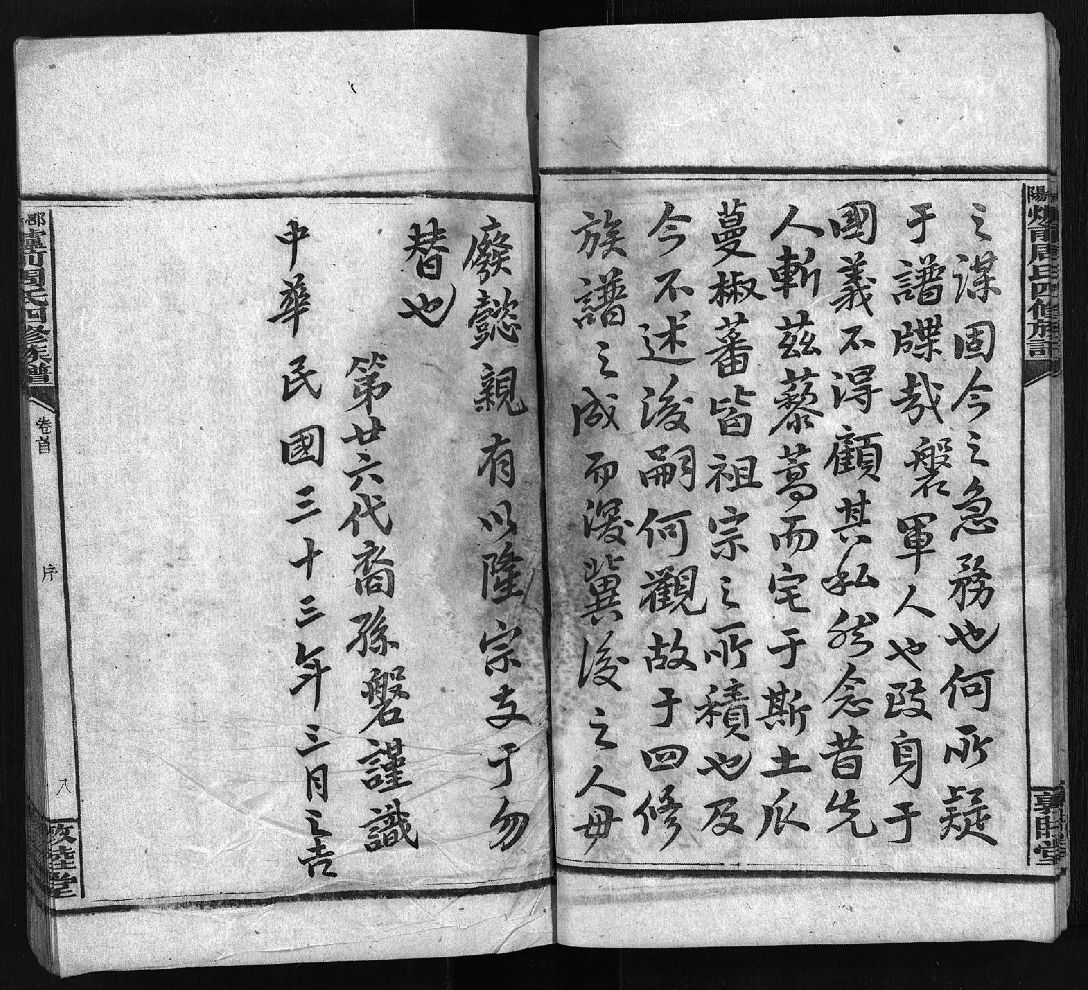 之謀固今之急務也何所疑
于譜牒哉磐軍人也致身于
國義不得顧其私然念昔先
人斬茲藜蒿而宅于斯土瓜
蔓椒蕃皆祖宗之所積也及
今不述後嗣何觀故于四修
族譜之成而深冀後之人毋
廢懿親有以隆宗支于勿
替也
第廿六代裔孫磐謹識
中華民國三十三年三月之吉
周氏四修族譜
卷首
序
八
堂